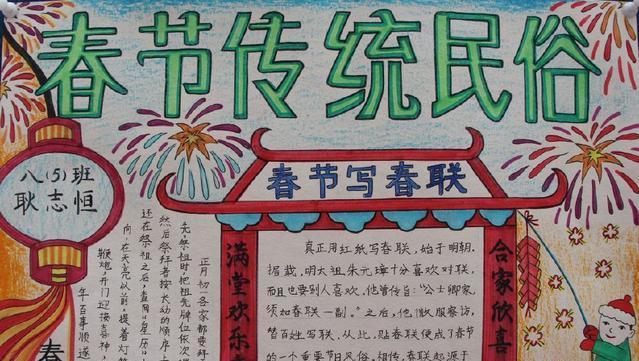 春节传统民俗
八(5)班
耿志恒
春节写春联
满堂欢乐
合家欣喜
真正用红纸写春联，始于明朝，
据载，明太祖朱元璋十分喜欢对联，
而且也要别人喜欢，他曾传旨："公士卿家，
须加春联一副。"之后，他微服察访，
替百姓写联，从此，贴春联便成了春节
的一个重要节日风俗。相传，春联起源于
正月初一各家都要拜
先，祭祖时把祖先牌位依次
然后祭拜者按长幼的顺序上
还在祭祖之后，查阅《皇历》
向，在天亮以前，提着灯
鞭炮，开门迎接喜神，
年百事顺遂
春